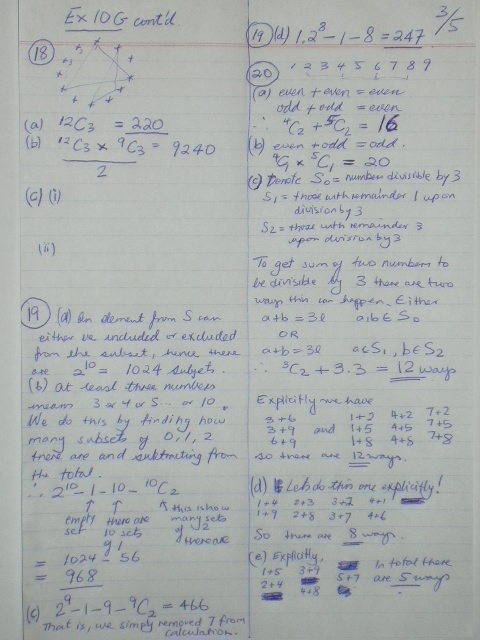 Ex 10G cont'd.
18
(a) 12C3 = 220
(b) 12C3 × 9C3 = 9240
2
(c) (i)
(ii)
19 (a) An element from S can
either be included or excluded
from the subset, hence there
are 2^10 = 1024 subsets.
(b) At least three numbers
means 3 or 4 or 5... or 10.
We do this by finding how
many subsets of 0, 1, 2
there are and subtracting from
the total.
∴ 2^10 - 1 - 10 - 10C2
empty set
there are 10 sets of 1
this is how many sets of 2 there are
= 1024 - 56
= 968
(c) 2^9 - 1 - 9 - 9C2 = 466
That is, we simply removed 7 from
calculation.
3/5
19 (d) 1.2^8 - 1 - 8 = 247
20 1 2 3 4 5 6 7 8 9
(a) even + even = even
odd + odd = even
∴ 4C2 + 5C2 = 16
(b) even + odd = odd.
4C1 × 5C1 = 20
(c) Denote S0 = numbers divisible by 3
S1 = those with remainder 1 upon
division by 3
S2 = those with remainder 3
upon division by 3
To get sum of two numbers to
be divisible by 3 there are two
ways this can happen. Either
a+b = 3l a,b ∈ S0
OR
a+b = 3l a ∈ S1, b ∈ S2
∴ 3C2 + 3.3 = 12 ways
Explicitly we have
3+6 1+2 4+2 7+2
3+9 and 1+5 4+5 7+5
6+9 1+8 4+8 7+8
so there are 12 ways.
(d) Lets do this one explicitly!
1+4 2+3 3+2 4+1
1+9 2+8 3+7 4+6
So there are 8 ways.
(e) Explicitly,
1+5
2+4 5+7
4+8
In total there
are 5 ways